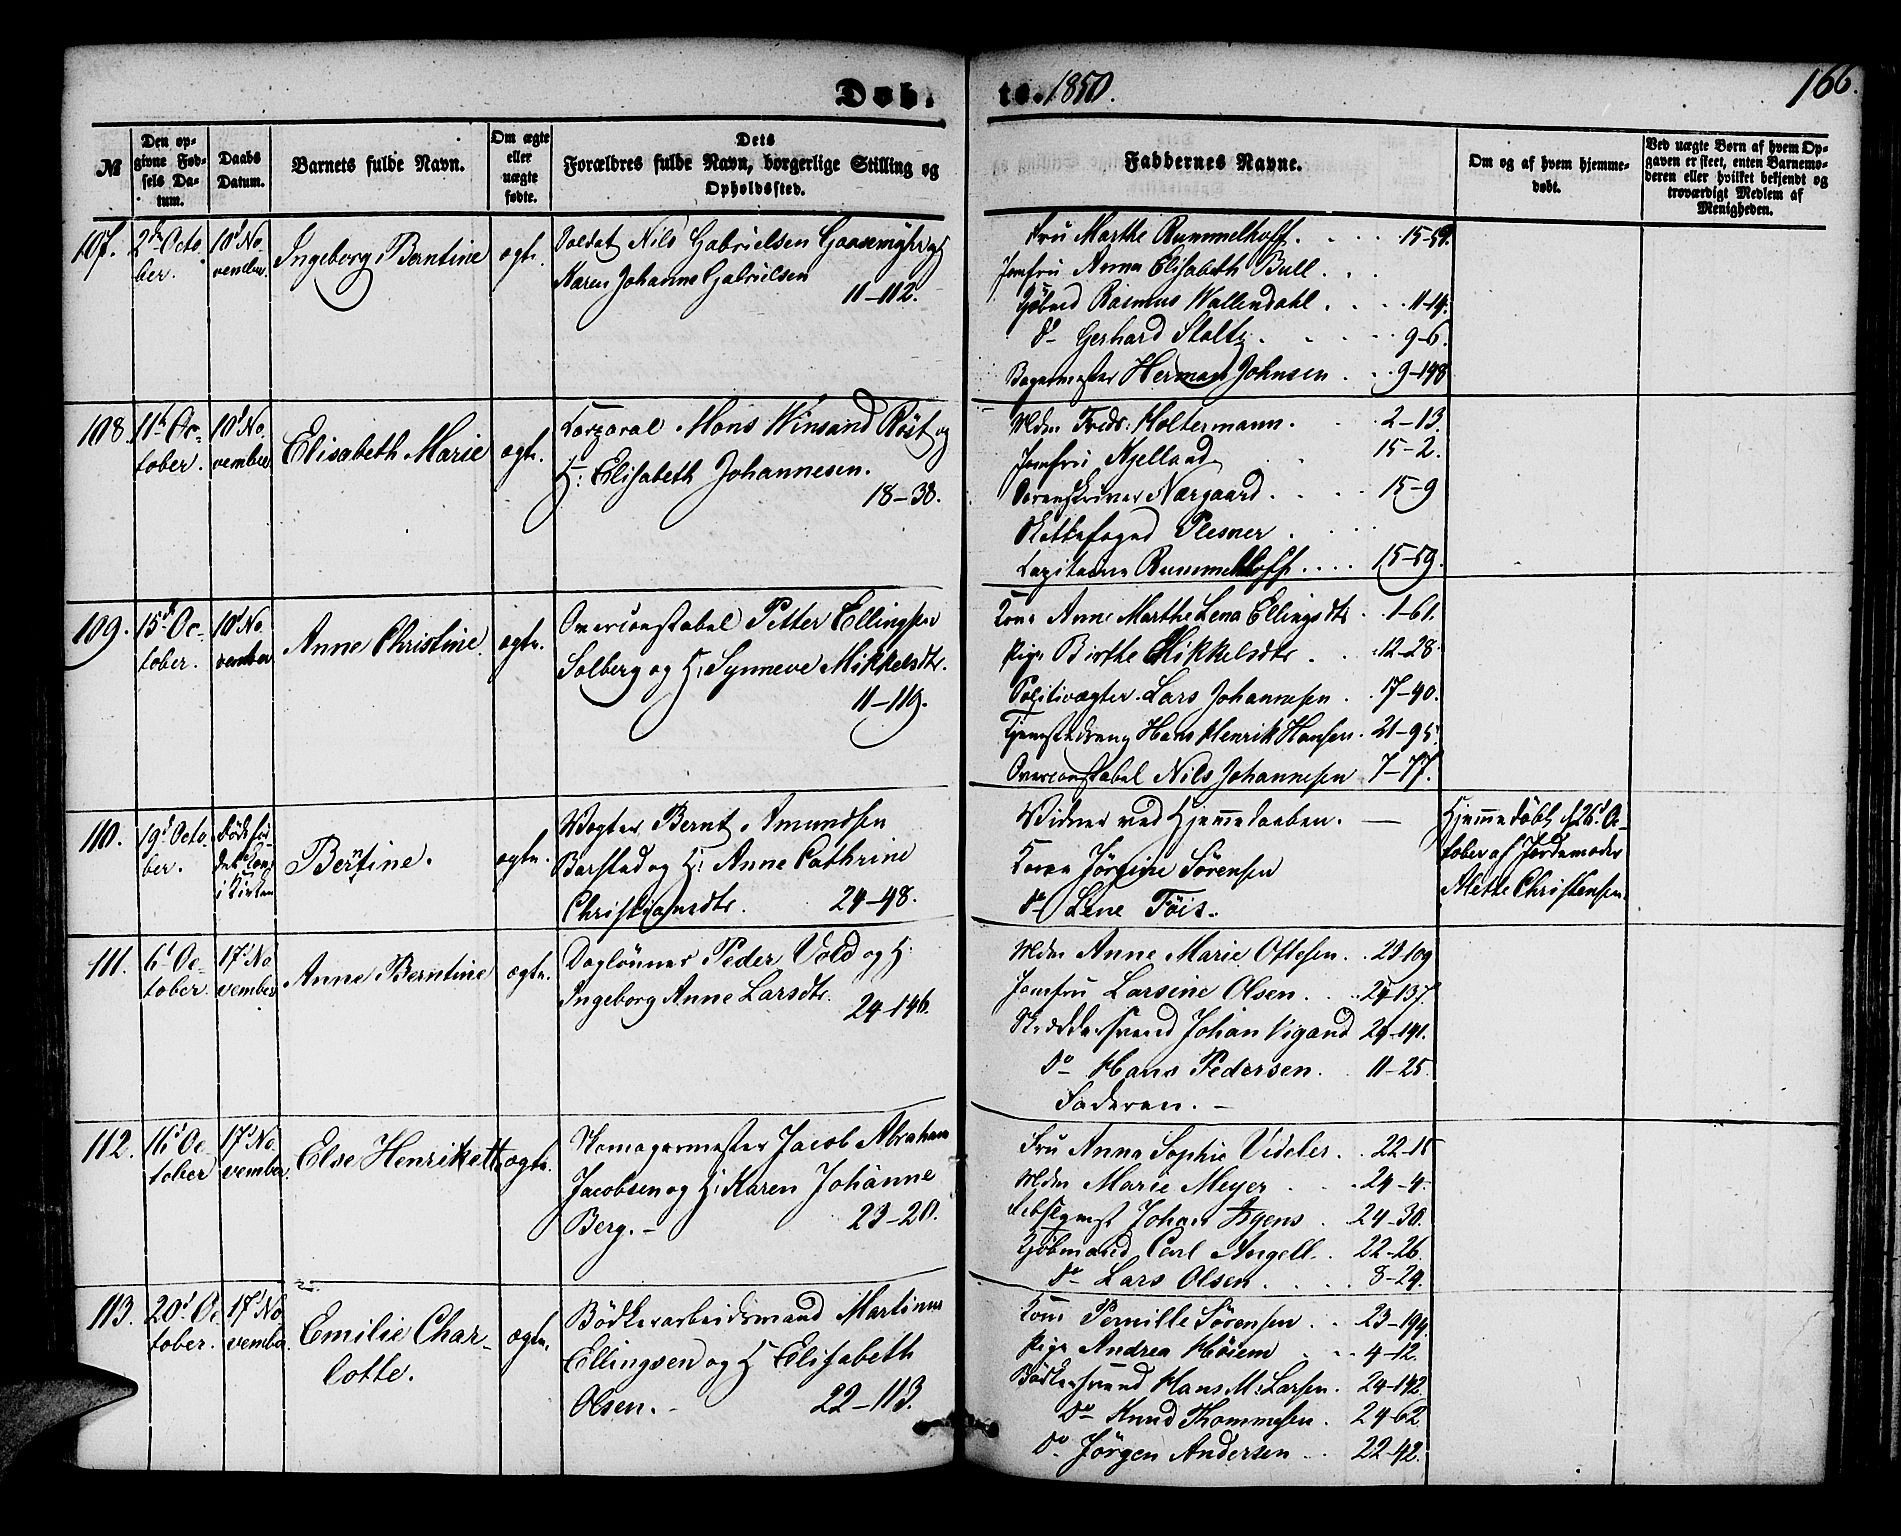 Døb. te. 1850. 166.
№
Den op-
givne Fød-
sels Da-
tum.
Daabs
Datum.
Barnets fulde Navn.
Om ægte
eller
uægte
fødte.
Dets
Forældres fulde Navn, borgerlige Stilling og
Opholdssted.
Faddernes Navne.
Om og af hvem hjemme-
døbt.
Ved uægte Børn af hvem Op-
gaven er skeet, enten Barnemo-
deren eller hvilket bekjendt og
troværdigt Medlem af
Menigheden.
107. 2d Octo
ber.
10d No
vember
Ingeborg Bertine
ægte.
Soldat Nils Gabrielsen
Karen Johanne Gabrielsen
11-112.
Fru Marthe Rummelhoff. 15-59.
Jomfru Anna Elisabeth Bull.
Rasmus Wallendahl. 11-14.
do Gerhard Stoltz. 9-6.
Bagermester Herman Johnsen. 9-148
108. 11d Oc-
tober.
10d No.
vember
Elisabeth Marie
ægte.
Corporal Mons Winsand Röst og
H: Elisabeth Johannesen.
18-38.
Mdm Fredr: Holtermann. 2-13.
Jomfru Kjelland 15-2.
Sorenskriver Nærgaard. 15-9
Plesner
Capitaine Rummelhoff. 15-59.
109. 15d Oc-
tober.
10d No
vember
Anne Christine.
ægte.
Overconstabel Petter Ellingsen
Solberg og H: Synneve Mikkelsdtr.
11-119.
Kone Anne Marthe Lena Ellingsdtr 1-61.
Pige Birthe Mikkelsdtr 12-28.
Politivægter Lars Johannesen 17-40.
Tjenestedreng Hans Henrik Hansen. 21-95.
Overconstabel Nils Johannesen 7-77.
110. 19d Octo
ber.
Født før
i Kirken
Berntine.
ægte.
Vægter Bernt Amundsen
Barstad og H: Anne Cathrine
Christiansdtr. 24-48.
Vidner ved Hjemmedaaben.
Kone Jörgine Sörensen
do Lene Föis.
Hjemmedöbt d 26d Oc-
tober af Jordemoder
Mette Christensen.
111. 6d Oc-
tober.
17d No
vember
Anne Berntine
ægte.
Daglönner Peder Vold og H:
Ingeborg Anne Larsdtr.
24-146.
Mdm Anne Marie Ottesen. 23-109
Jomfru Larsine Olsen. 24-137.
Skræddersvend Johan Vigand 24-141.
do Hans Pedersen. 11-25.
Faderen.
112. 16d Oc-
tober
17d No
vember
Else Henriette
ægte.
Skomagermester Jacob Abraham
Jacobsen og H: Karen Johanne
Berg. 23-20.
Fru Anna Sophie Videler. 22-15
Mdm Marie Meyer 24-4
Johan Agens 24-30.
Kjöbmand Carl Angell. 22-26.
do Lars Olsen 8-24.
113. 20d Oc
tober.
17d No
vember.
Emilie Char-
lotte.
ægte.
Bödkerarbeidsmand Martinus
Ellingsen og H Elisabeth
Olsen. 22-113.
Kone Pernille Sörensen. 23-194.
Pige Andrea Höiem 4-12.
Bödkersvend Hans M: Larsen. 24-142.
do Knud Thommesen. 24-62
do Jörgen Andersen 22-42.